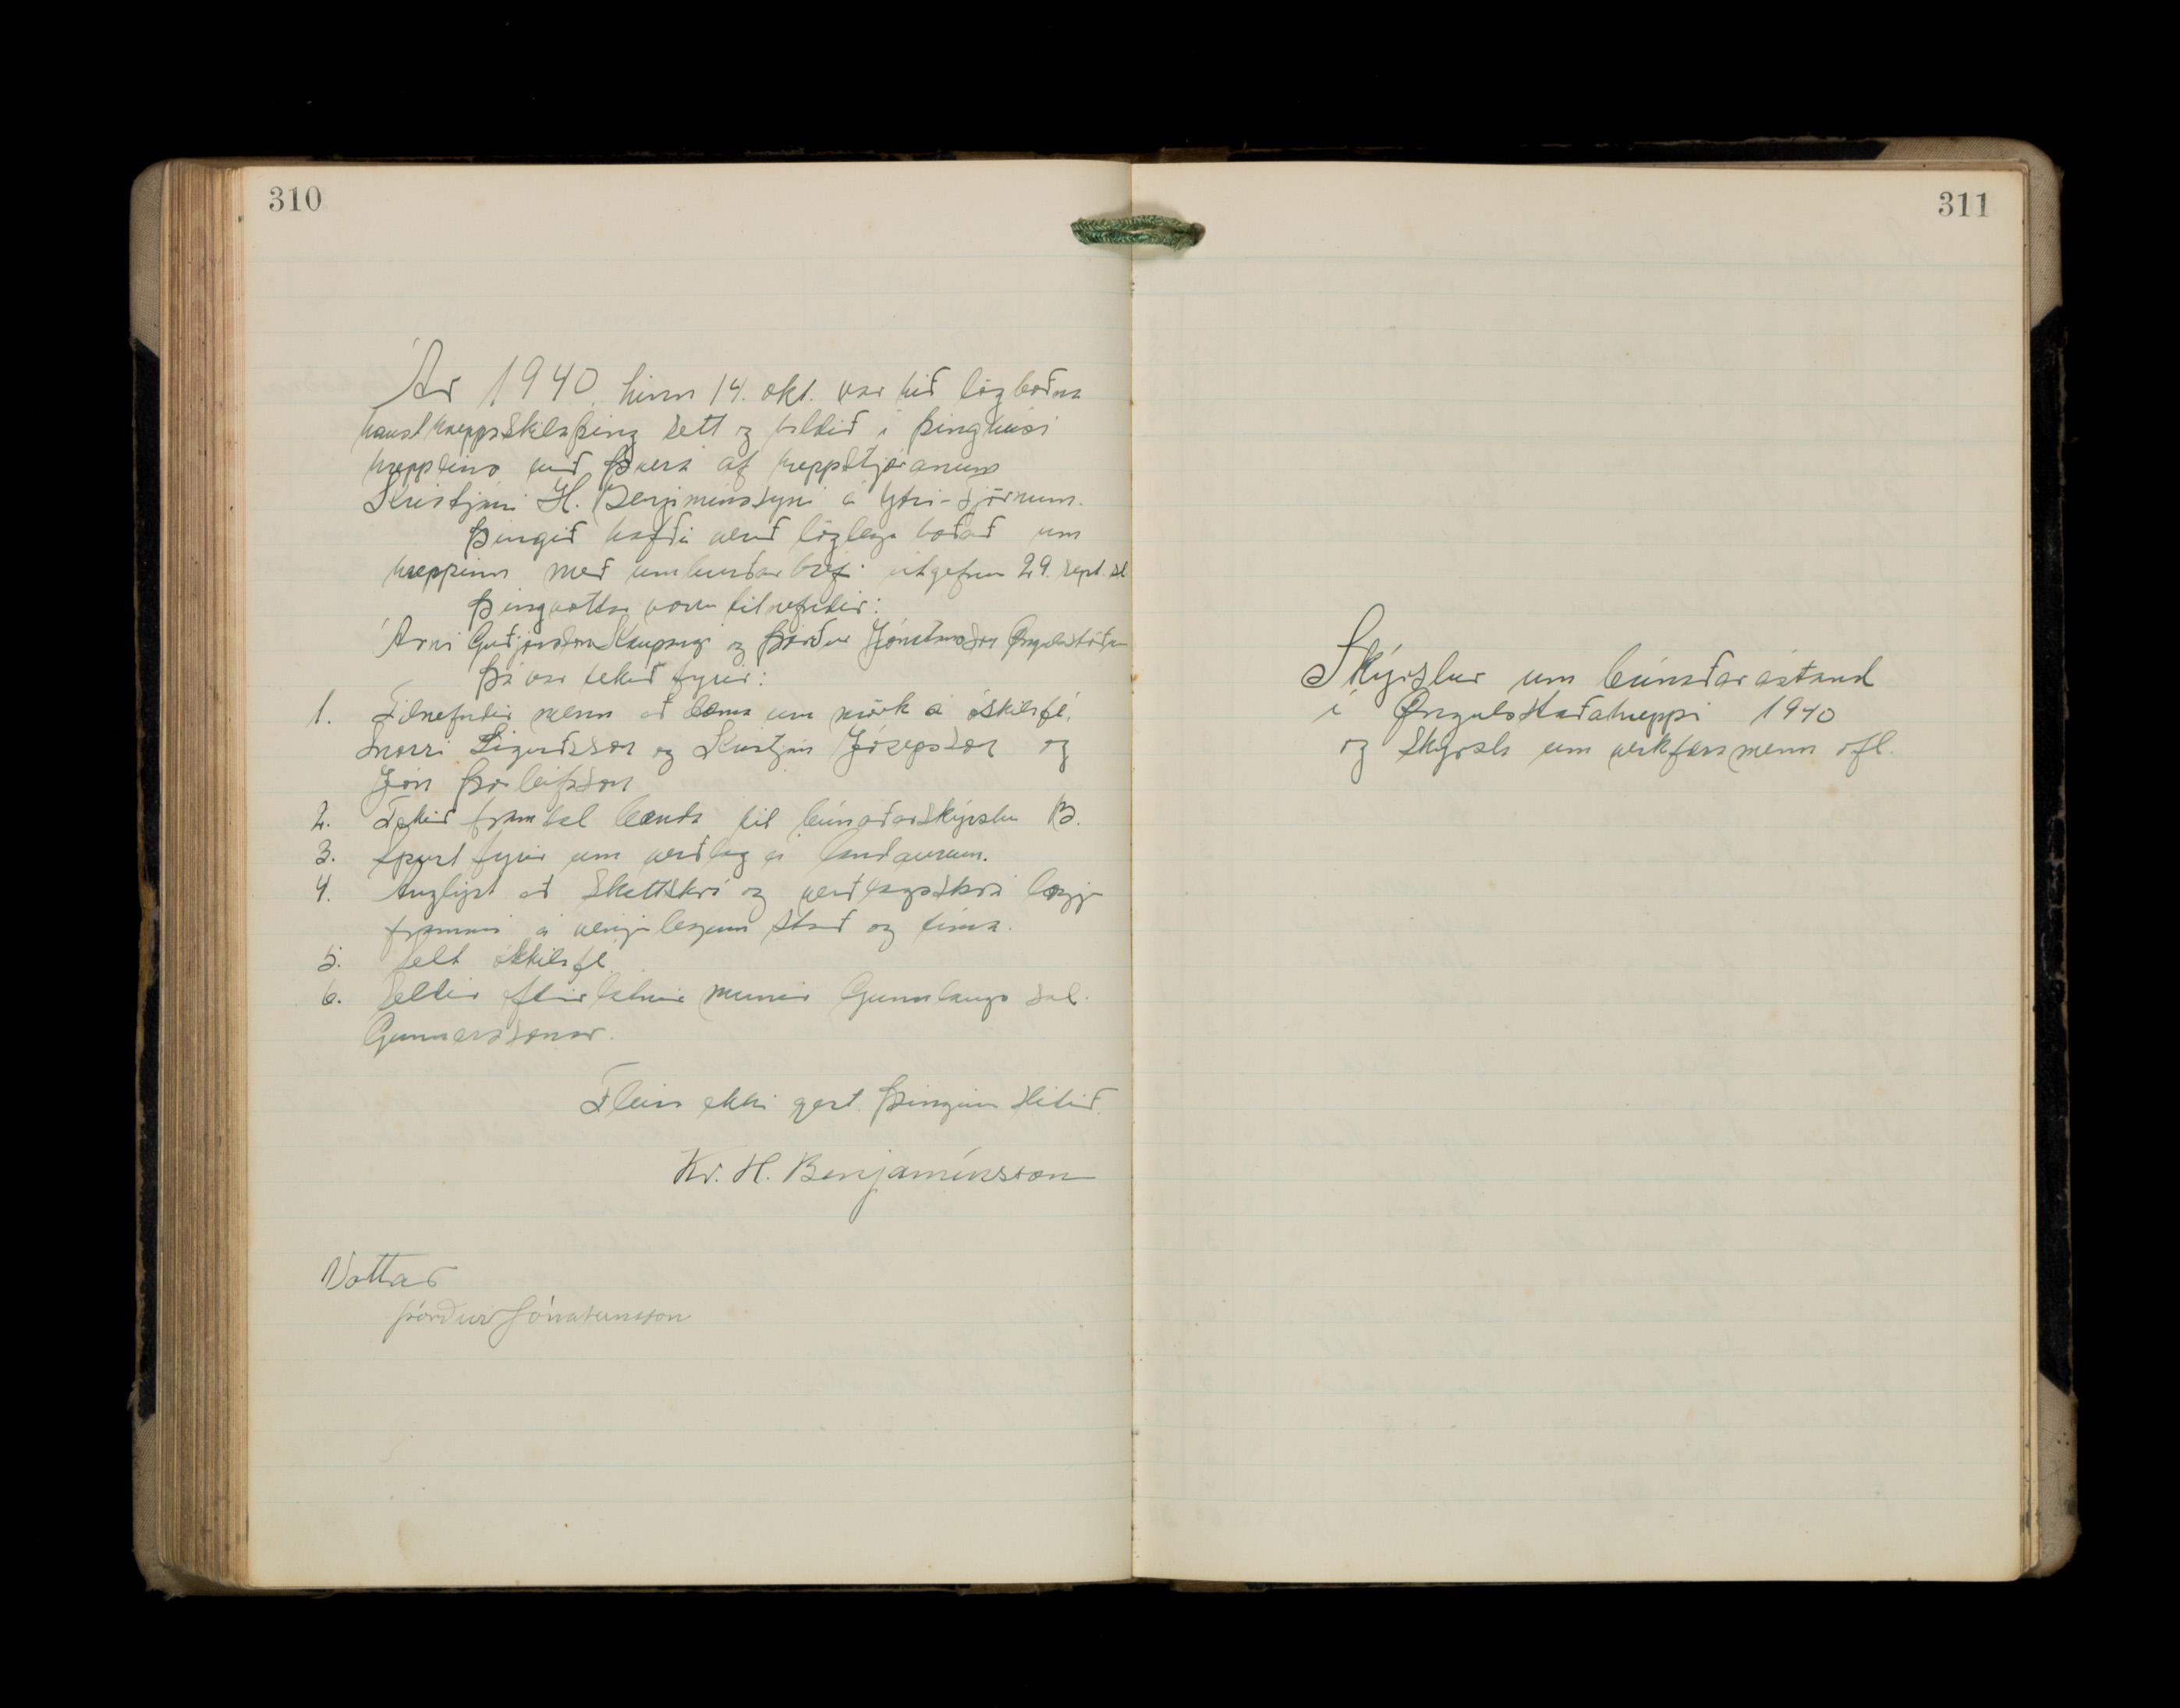 310
Ár 1940, hinn 14. okt. var hið lögboðna
hausthreppsskilaþing sett og haldið í þinghúsi
hreppsins við Þverá af hreppstjóranum
Kristjáni H. Benjamínssyni á Ytri-Tjörnum.
Þingið hafði verið löglega boðað um
hreppinn með umburðarbréfi útgefnu 29. sept. sl
Þingvottar voru tilnefndir:
Árni Guðjónsson Kaupangi og Þórður Jónatansson Öngulsstöðum
Þá var tekið fyrir:
1. Tilnefndir menn að dæma um mörk á óskilafé,
Snorri Sigurðsson og Kristján Jósepsson og
Jón Þorleifsson
2. Tekið framtal bænda til búnaðarskýrslu B.
3. Spurt fyrir um verðlag á landaurum.
4. Auglýst að skattskrá og verðlagsskrá lægju
frammi á venjulegum stað og tíma.
5. Selt óskilafé.
6. Seldir eftirlátnir munir Gunnlaugs sál.
Gunnarssonar.
Fleira ekki gert. Þinginu slitið.
Kr. H. Benjamínsson
Vottar
Þórður Jónatansson
311
Skýrslur um búnaðarástand
í Öngulsstaðahreppi 1940
og skýrsla um verkfæra menn ofl.